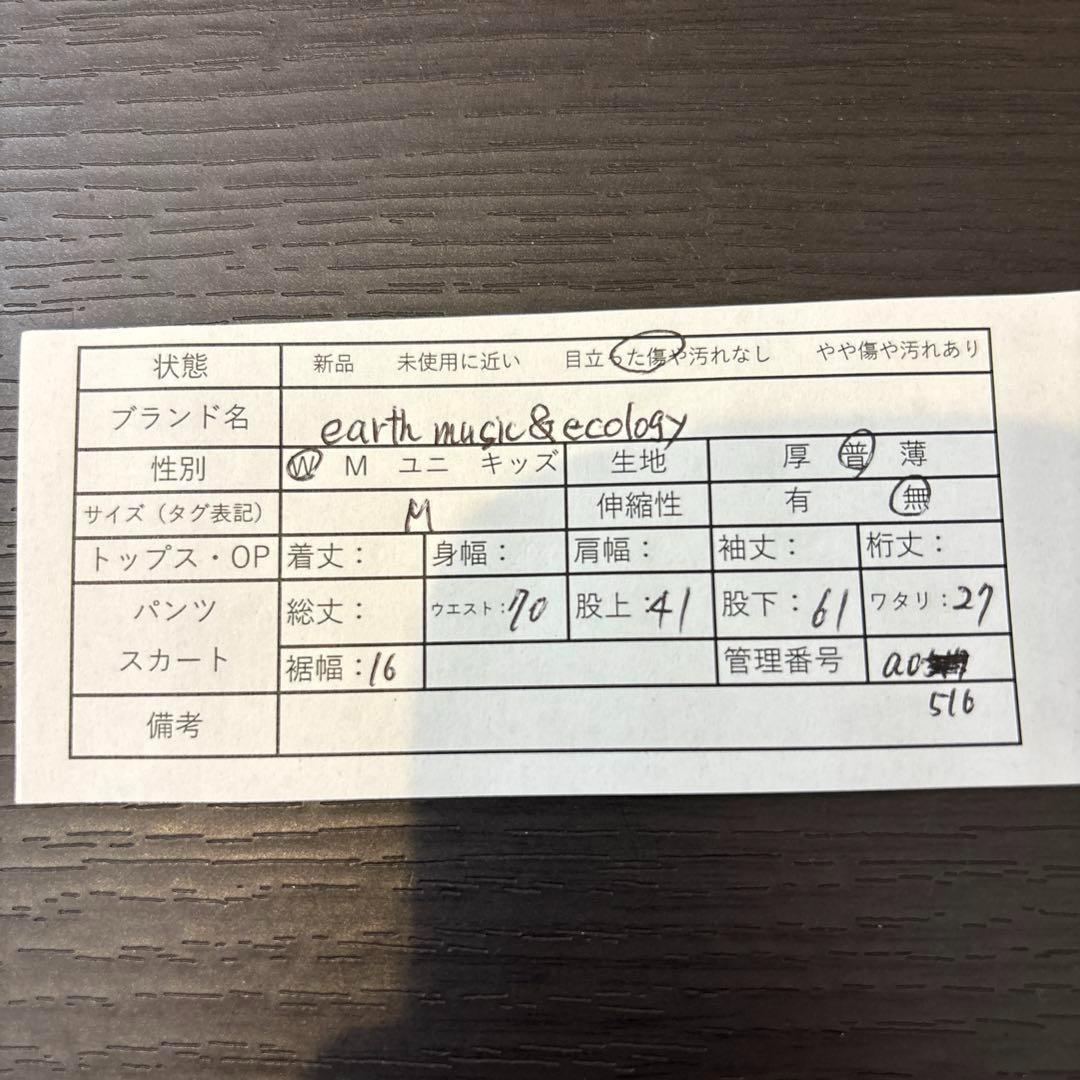 状態 新品 未使用に近い 目立った傷や汚れなし やや傷や汚れあり
ブランド名 earth music&ecology
性別 W M ユニ キッズ 生地 厚 普 薄
サイズ（タグ表記） M 伸縮性 有 無
トップス・OP 着丈： 身幅： 肩幅： 袖丈： 桁丈：
パンツ 総丈： ウエスト：70 股上：41 股下：61 ワタリ：27
スカート 裾幅：16 管理番号 a0
516
備考